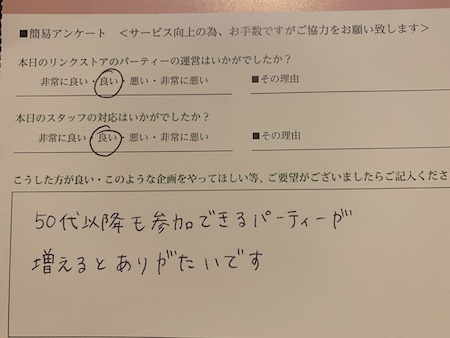 ■簡易アンケート ＜サービス向上の為、お手数ですがご協力をお願い致します＞
本日のリンクストアのパーティーの運営はいかがでしたか？
非常に良い・良い・悪い・非常に悪い ■その理由
本日のスタッフの対応はいかがでしたか？
非常に良い・良い・悪い・非常に悪い ■その理由
こうした方が良い・このような企画をやってほしい等、ご要望がございましたらご記入くださ
50代以降も参加できるパーティーが
増えるとありがたいです